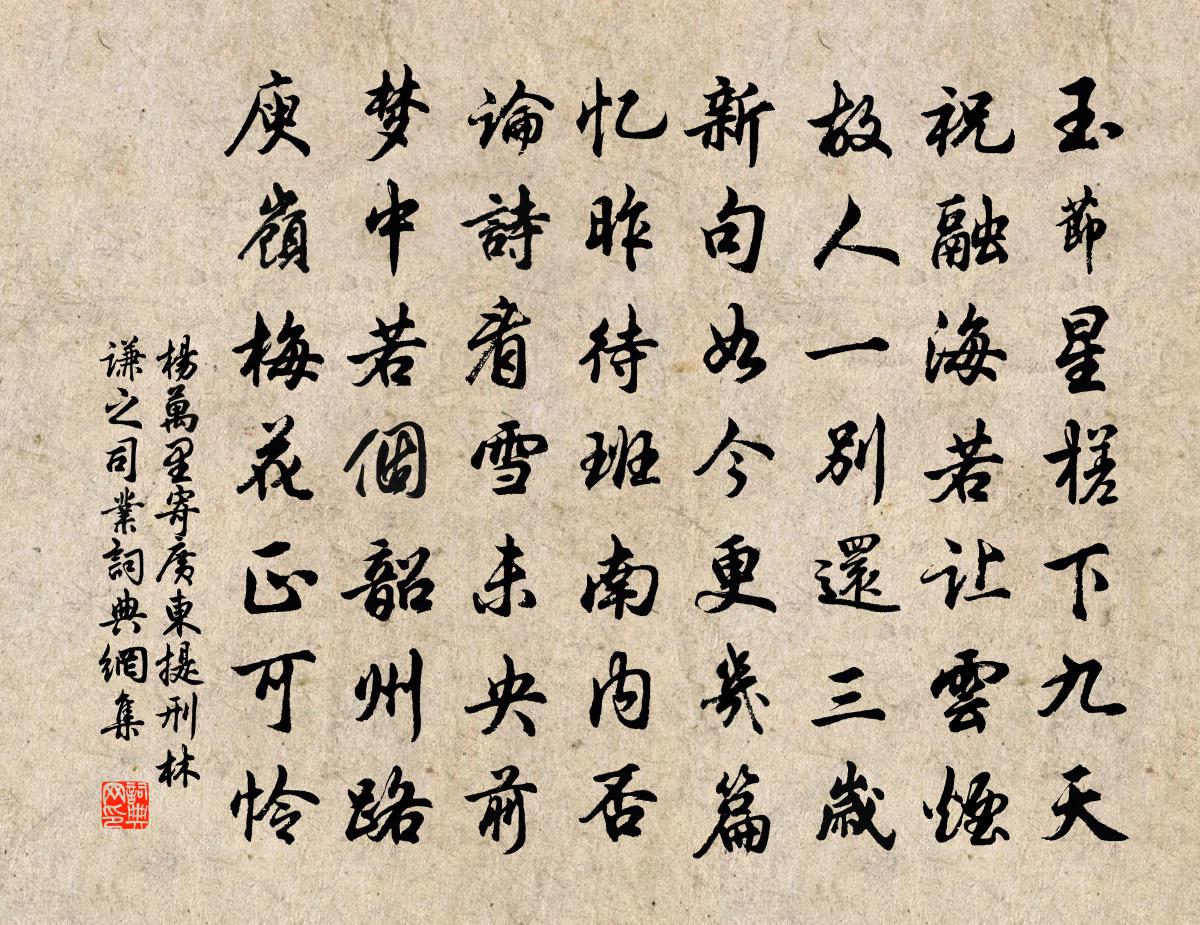 玉節星槎下九天
祝融海若让雲煙
故人一別還三歲
新句如今更幾篇
忆昨待班南内否
論詩看雪未央前
梦中若個韶州路
庾嶺梅花正可怜
楊萬里寄廣東提刑林
謙之司業詞典網集
詞典
网印